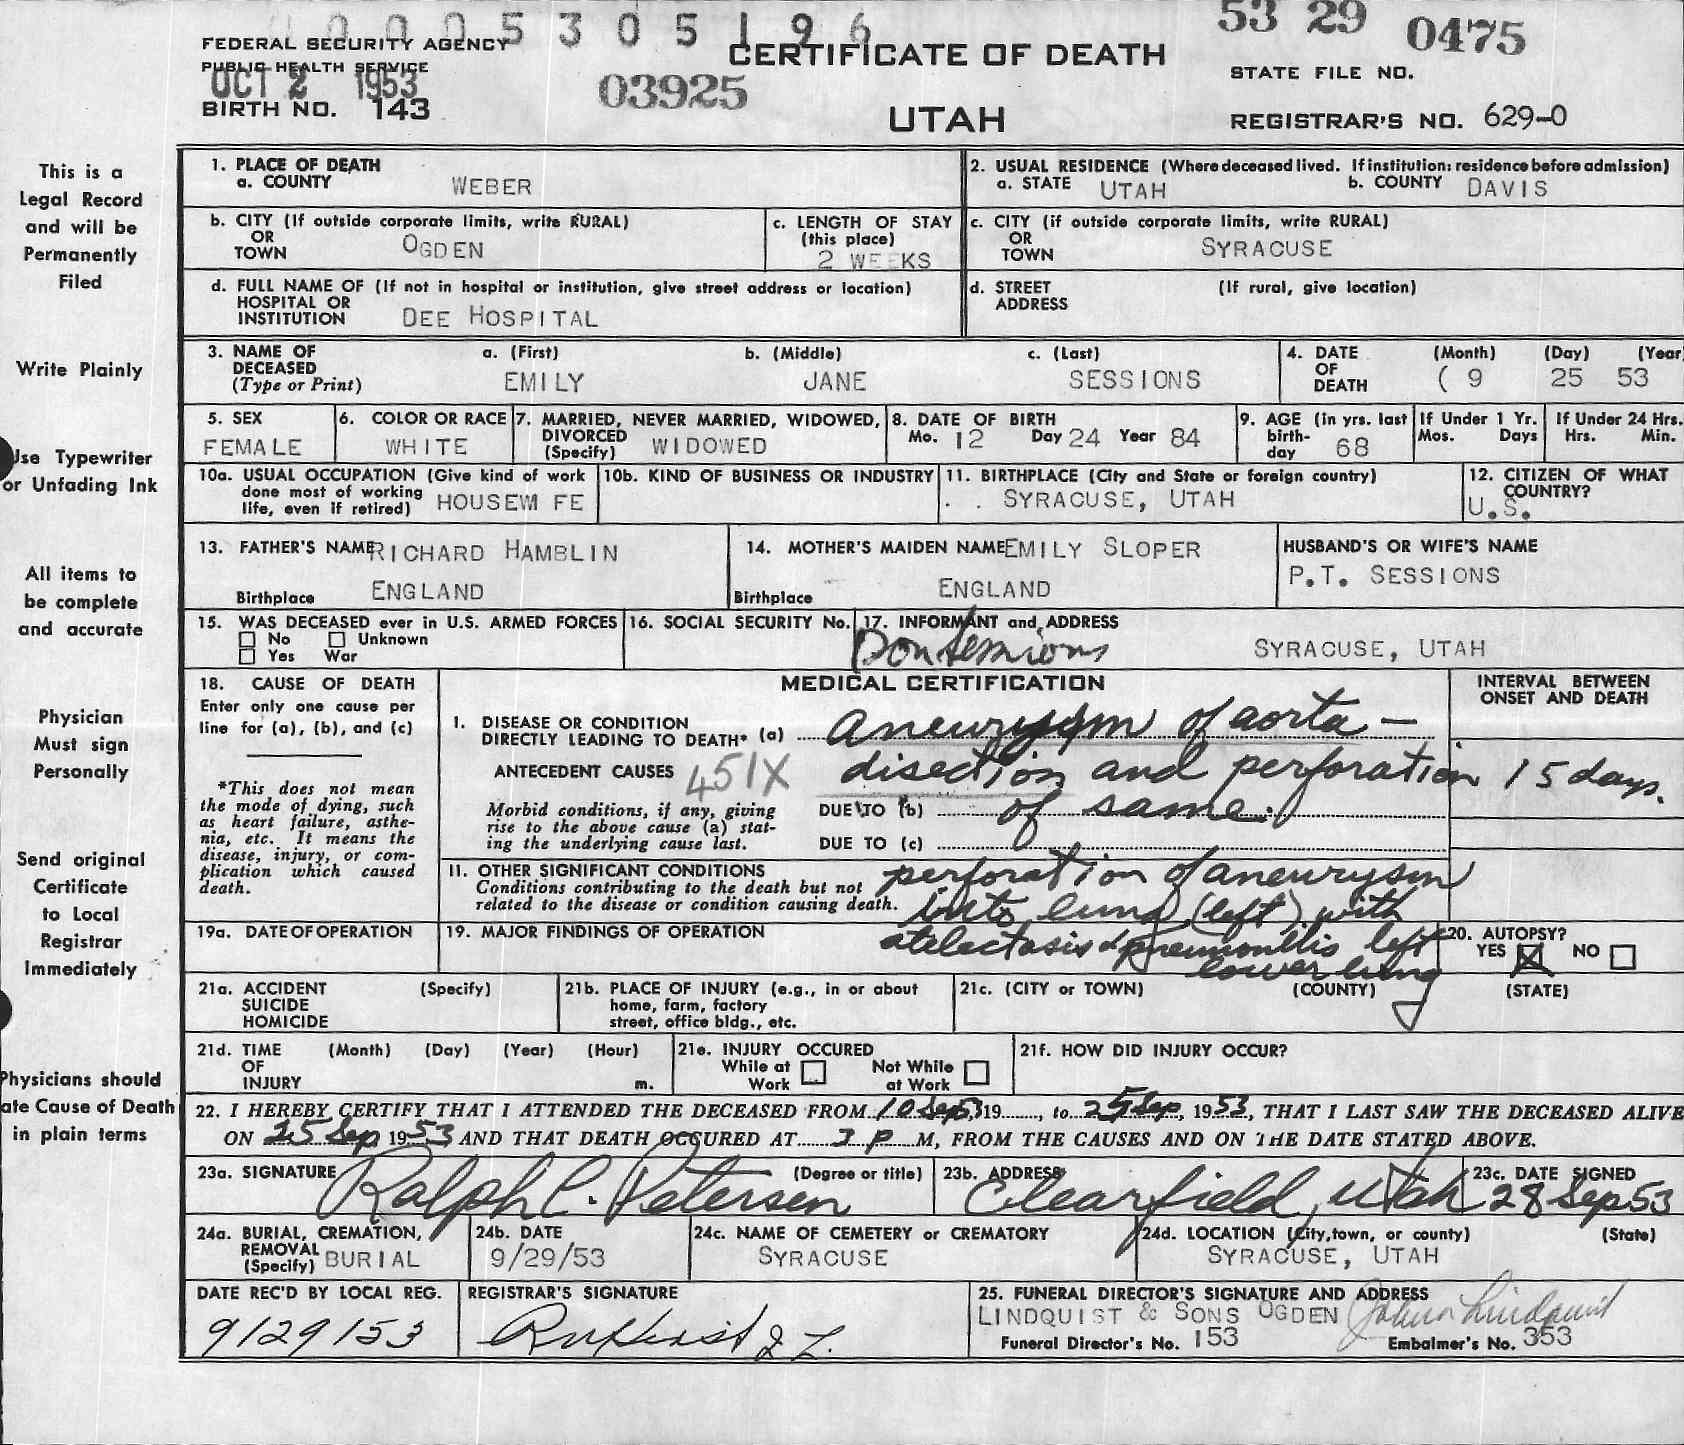 0005305196
53 29 0475
FEDERAL SECURITY AGENCY
PUBLIC HEALTH SERVICE
OCT 2 1953
BIRTH NO. 143
03925
CERTIFICATE OF DEATH
UTAH
STATE FILE NO.
REGISTRAR'S NO. 629-0
This is a
Legal Record
and will be
Permanently
Filed
Write Plainly
Use Typewriter
or Unfading Ink
All items to
be complete
and accurate
Physician
Must sign
Personally
Send original
Certificate
to Local
Registrar
Immediately
Physicians should
ate Cause of Death
in plain terms
1. PLACE OF DEATH
a. COUNTY WEBER
2. USUAL RESIDENCE (Where deceased lived. If institution: residence before admission)
a. STATE UTAH b. COUNTY DAVIS
b. CITY (If outside corporate limits, write RURAL)
OR
TOWN OGDEN
c. LENGTH OF STAY
(this place)
2 WEEKS
c. CITY (if outside corporate limits, write RURAL)
OR
TOWN SYRACUSE
d. FULL NAME OF (If not in hospital or institution, give street address or location)
HOSPITAL OR
INSTITUTION DEE HOSPITAL
d. STREET (If rural, give location)
ADDRESS
3. NAME OF
DECEASED
(Type or Print)
a. (First) b. (Middle) c. (Last)
EMILY JANE SESSIONS
4. DATE
OF
DEATH
(Month) (Day) (Year
( 9 25 53
5. SEX
FEMALE
6. COLOR OR RACE
WHITE
7. MARRIED, NEVER MARRIED, WIDOWED,
DIVORCED
(Specify) WIDOWED
8. DATE OF BIRTH
Mo. 12 Day 24 Year 84
9. AGE (in yrs. last
birth-
day 68
If Under 1 Yr.
Mos. Days
If Under 24 Hrs.
Hrs. Min.
10a. USUAL OCCUPATION (Give kind of work
done most of working
life, even if retired) HOUSEW FE
10b. KIND OF BUSINESS OR INDUSTRY
11. BIRTHPLACE (City and State or foreign country)
. . SYRACUSE, UTAH
12. CITIZEN OF WHAT
COUNTRY?
U.S.
13. FATHER'S NAME RICHARD HAMBLIN
Birthplace ENGLAND
14. MOTHER'S MAIDEN NAME EMILY SLOPER
Birthplace ENGLAND
HUSBAND'S OR WIFE'S NAME
P.T. SESSIONS
15. WAS DECEASED ever in U.S. ARMED FORCES
No Unknown
Yes War
16. SOCIAL SECURITY No.
17. INFORMANT and ADDRESS
Don Sessions SYRACUSE, UTAH
18. CAUSE OF DEATH
Enter only one cause per
line for (a), (b), and (c)
*This does not mean
the mode of dying, such
as heart failure, asthe-
nia, etc. It means the
disease, injury, or com-
plication which caused
death.
MEDICAL CERTIFICATION
INTERVAL BETWEEN
ONSET AND DEATH
I. DISEASE OR CONDITION
DIRECTLY LEADING TO DEATH* (a) aneurysm of aorta —
ANTECEDENT CAUSES 451X disection and perforation 15 days.
Morbid conditions, if any, giving
rise to the above cause (a) stat-
ing the underlying cause last.
DUE TO (b) of same.
DUE TO (c)
II. OTHER SIGNIFICANT CONDITIONS
Conditions contributing to the death but not
related to the disease or condition causing death.
perforation of aneurysm
into lung (left) with
atelectasis & pneumonitis left
lower lung
19a. DATE OF OPERATION
19. MAJOR FINDINGS OF OPERATION
20. AUTOPSY?
YES X NO
21a. ACCIDENT (Specify)
SUICIDE
HOMICIDE
21b. PLACE OF INJURY (e.g., in or about
home, farm, factory
street, office bldg., etc.
21c. (CITY or TOWN) (COUNTY) (STATE)
21d. TIME (Month) (Day) (Year) (Hour)
OF
INJURY m.
21e. INJURY OCCURED
While at Not While
Work at Work
21f. HOW DID INJURY OCCUR?
22. I HEREBY CERTIFY THAT I ATTENDED THE DECEASED FROM 10 Sep 53 19......, to 25 Sep, 1953, THAT I LAST SAW THE DECEASED ALIVE
ON 25 Sep 1953 AND THAT DEATH OCCURED AT 3 P M, FROM THE CAUSES AND ON THE DATE STATED ABOVE.
23a. SIGNATURE (Degree or title)
Ralph C. Petersen
23b. ADDRESS
Clearfield, Utah
23c. DATE SIGNED
28 Sep 53
24a. BURIAL, CREMATION,
REMOVAL
(Specify) BURIAL
24b. DATE
9/29/53
24c. NAME OF CEMETERY OR CREMATORY
SYRACUSE
24d. LOCATION (City, town, or county) (State)
SYRACUSE, UTAH
DATE REC'D BY LOCAL REG.
9/29/53
REGISTRAR'S SIGNATURE
25. FUNERAL DIRECTOR'S SIGNATURE AND ADDRESS
LINDQUIST & SONS OGDEN
Funeral Director's No. 153
Embalmer's No. 353